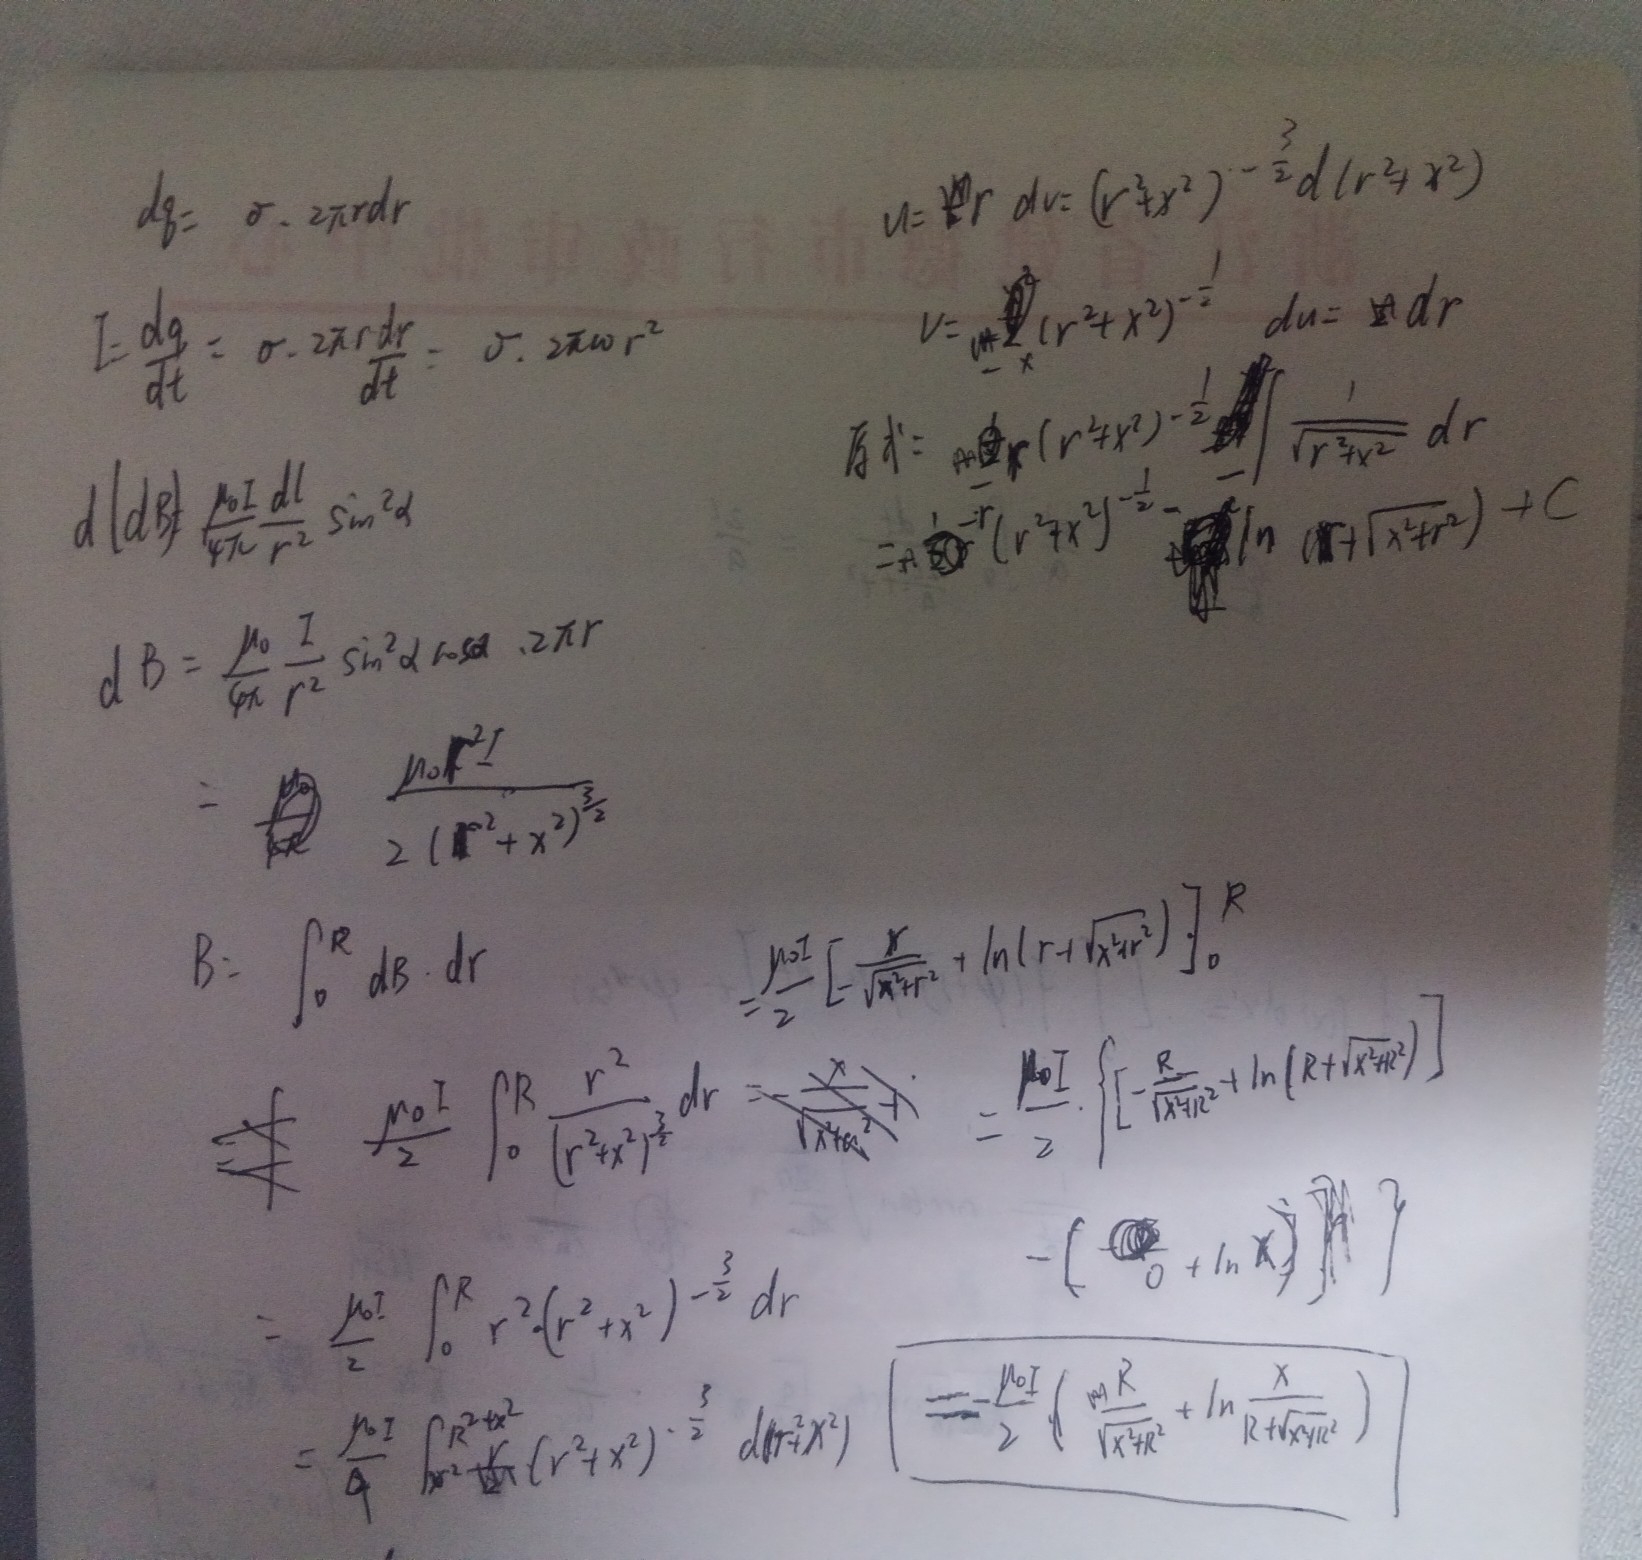 dq= σ·2πrdr
I=dq/dt = σ·2πr dr/dt = σ·2πωr²
d(dB)= μ₀I/4π dl/r² sin²α
dB = μ₀/4π I/r² sin²α cosα ·2πr
= μ₀r²I / 2(r²+x²)^(3/2)
B= ∫₀^R dB·dr
μ₀I/2 ∫₀^R r²/(r²+x²)^(3/2) dr =
= μ₀I/2 ∫₀^R r²·(r²+x²)^(-3/2) dr
= μ₀I/4 ∫^(R²+x²) r (r²+x²)^(-3/2) d(r²+x²)
u= r dv= (r²+x²)^(-3/2) d(r²+x²)
v= (r²+x²)^(-1/2) du= dr
原式= -r(r²+x²)^(-1/2) - ∫ 1/√(r²+x²) dr
= -r(r²+x²)^(-1/2) - ln (r+√(x²+r²)) +C
= μ₀I/2 [- r/√(x²+r²) + ln(r+√(x²+r²))]₀^R
= μ₀I/2 · {[- R/√(x²+R²) + ln(R+√(x²+R²))]
-(0 + ln x)}
= - μ₀I/2 ( R/√(x²+R²) + ln x/(R+√(x²+R²)) )